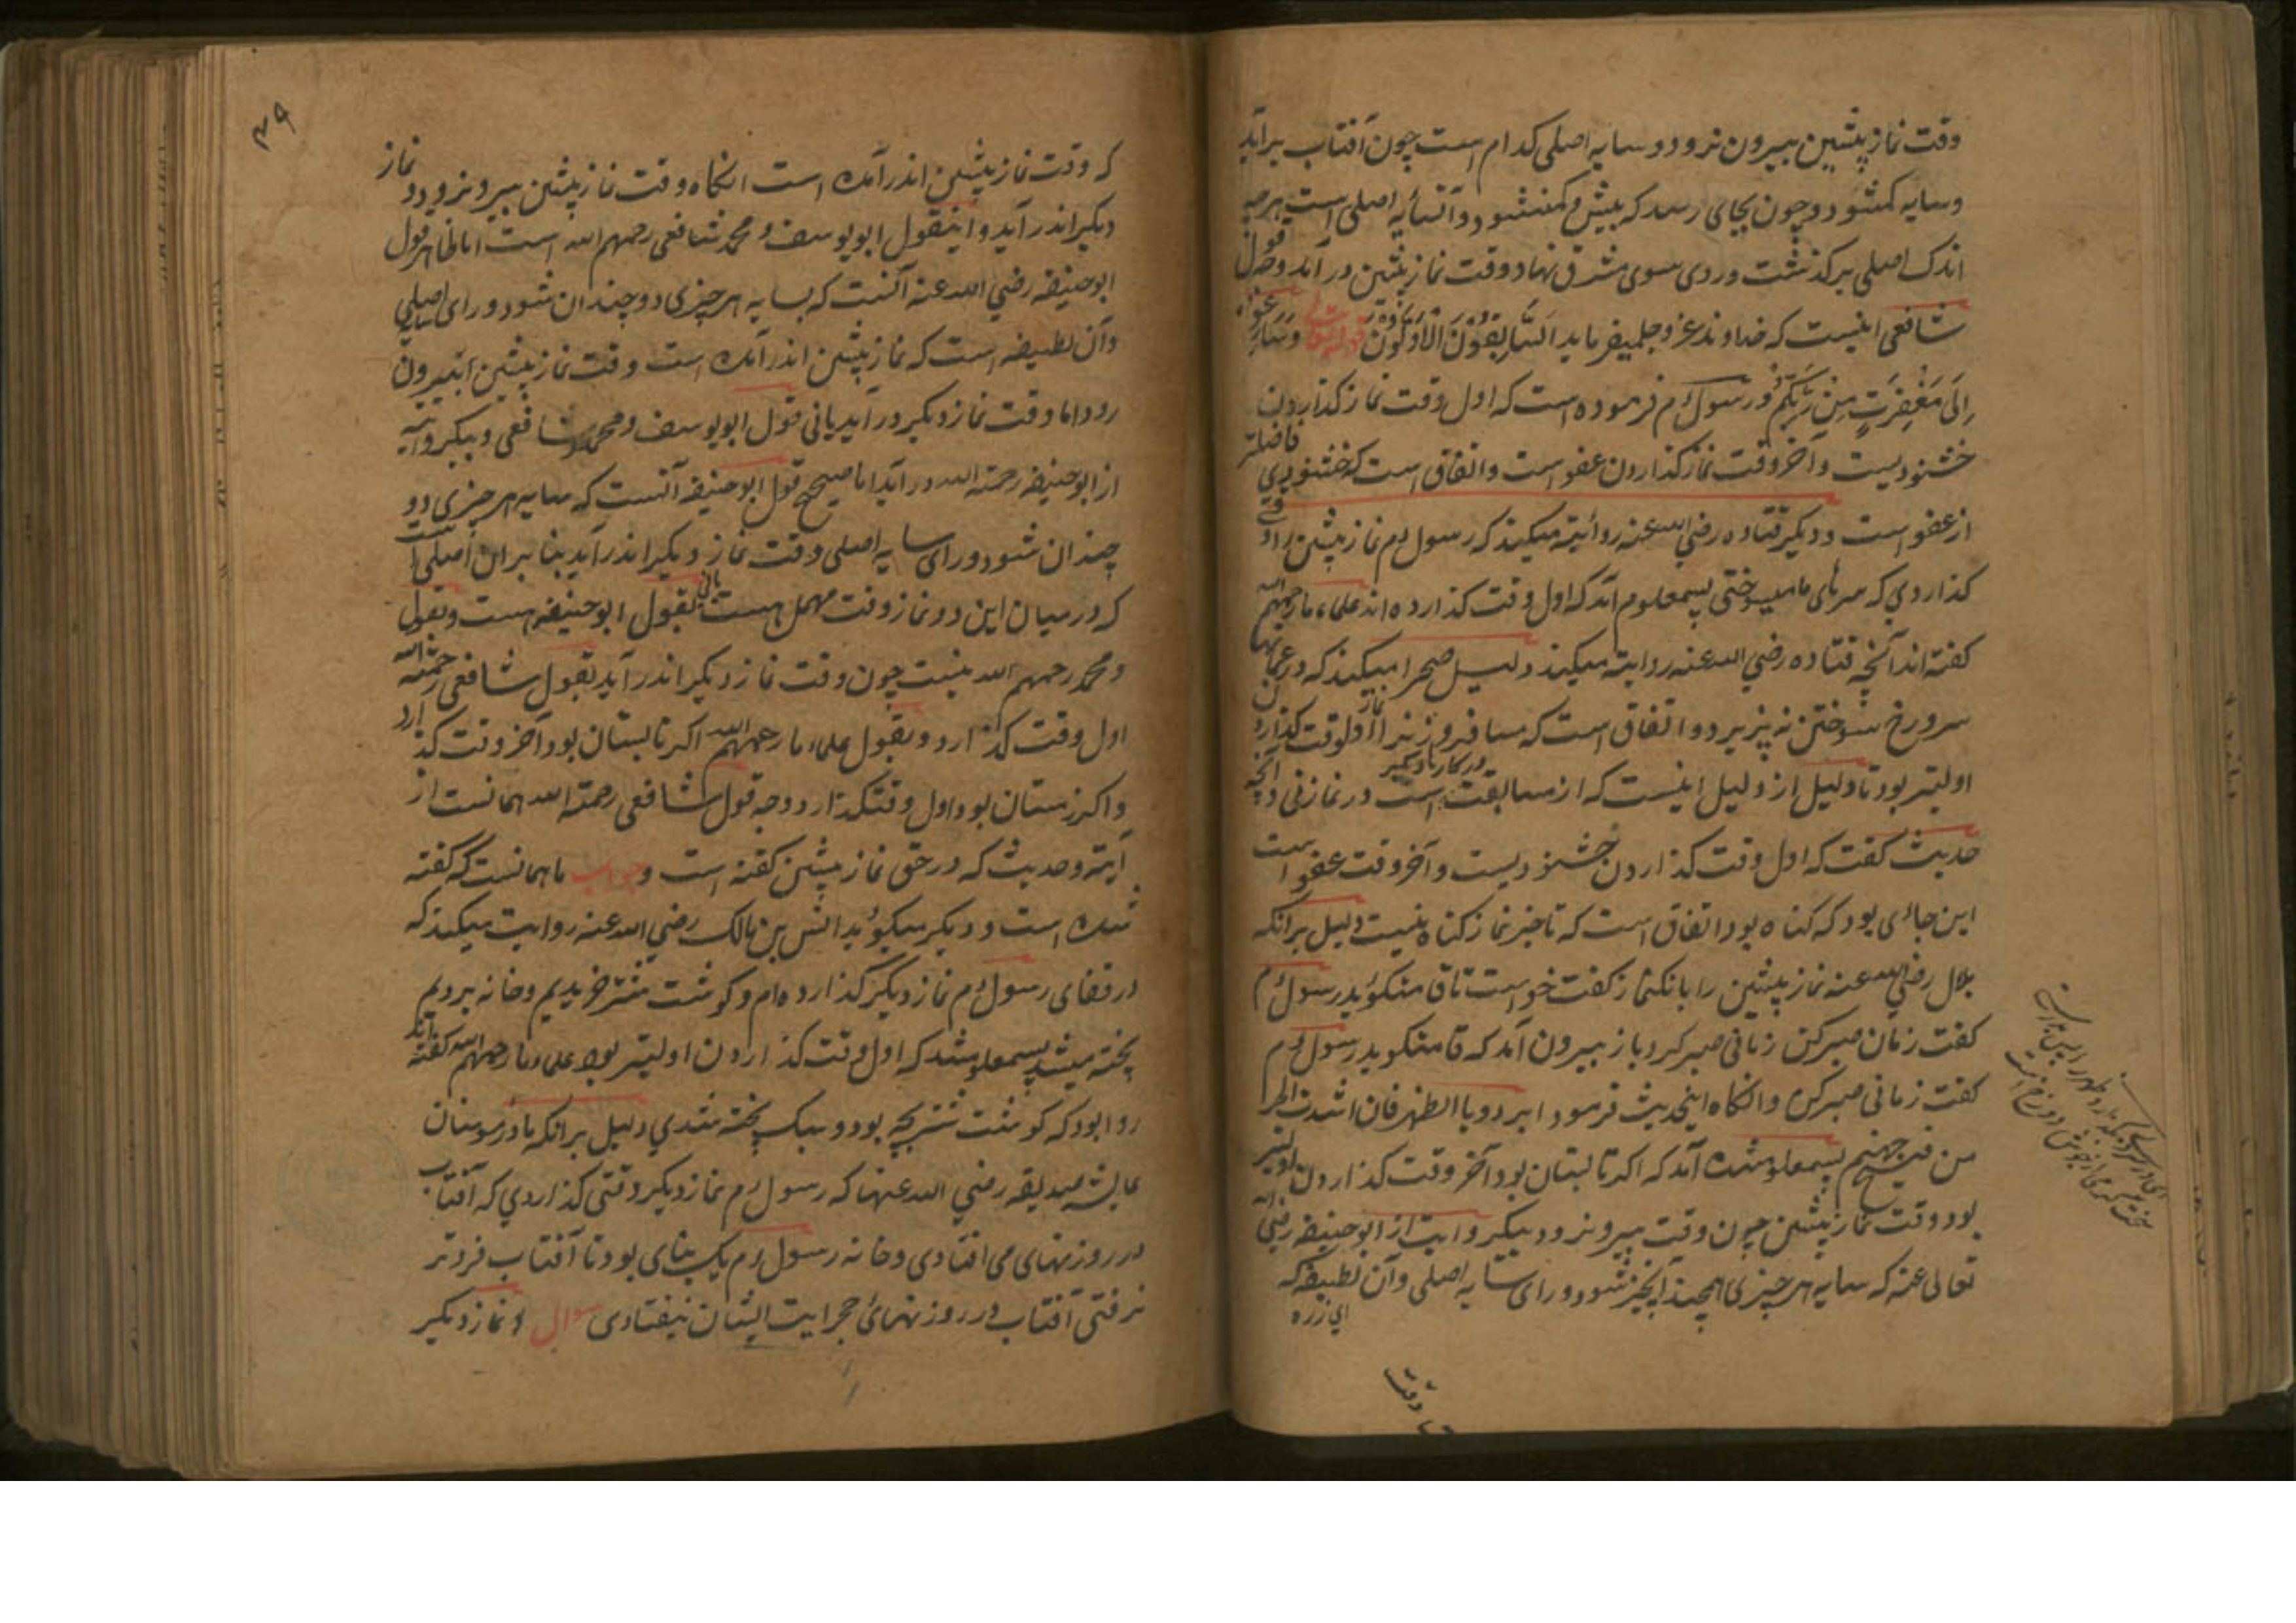 وقت نماز پیشین بیرون نرود و سایه اصلی کدام است چون آفتاب برآید
و سایه کمشود و چون بجای رسد که بیش و کم نشود و آنسایه اصلی است هرچه
اندک اصلی برگذشت و روی سوی مشرق نهاد و وقت نماز پیشین درآمد و قول
شافعی اینست که خداوند عز و جل میفرماید السابقون الاولون قوله تعالی وسارعوا
الی مغفرت من ربکم و رسول م فرموده است که اول وقت نماز گذاردن
خشنودیست و آخر وقت نماز گذاردن عفو است و اتفاق است که خشنودی فاضلتر
از عفو است و دیگر قتاده رضی الله عنه روایته میکند که رسول م نماز پیشین را وقتی
گذاردی که سرهای ما میسوختی پسمعلوم آمد که اول وقت گذارده اند علماء ما رحمهم الله
گفته اند آنچه قتاده رضی الله عنه روایته میکند دلیل صحرا میکند که در عمارتها
سر و رخ سوختن نه پزیرد و اتفاق است که مسافر و زنرا نماز اولوقت گذاردن
اولیتر بود تا دلیل از دلیل اینست که از مسابقت است در کارهاء دیگر در نماز نی و آنچه
حدیث گفت که اول وقت گذاردن خشنودیست و آخر وقت عفو است
این جائی بود که گناه بود اتفاق است که تاخیر نماز گناه نیست دلیل برانکه
بلال رضی الله عنه نماز پیشین را بانگنماز گفت خواست تا قامتگوید رسول م
گفت زمان صبر کن زمانی صبر کرد باز بیرون آمد که قامتگوید رسول م
گفت زمانی صبر کن و انگاه اینحدیث فرمود ابردوا بالظهر فان اشدت الحر
من فیح جهنم پسمعلوم شده آمد که اگر تابستان بود آخر وقت گذاردن اولیتر
بود وقت نماز پیشین چون وقت بیرونرود بیکروایت از ابوحنیفه رضی الله
تعالی عنه که سایه هر چیزی همچند آنچیز شود ورای سایه اصلی و آن لطیفه که
ای زره
که وقت نماز پیشین اندرآمده است انگاه وقت نماز پیشین بیرونرود و نماز
دیگر اندرآید و اینقول ابویوسف و محمد شافعی رحمهم الله است اما ظاهر قول
ابوحنیفه رضی الله عنه آنست که بسایه هر چیزی دو چندان شود ورای سایه اصلی
و آن لطیفه است که نماز پیشین اندرآمده است وقت نماز پیشین بیرون
رود اما وقت نماز دیگر درآید یانی قول ابویوسف و محمد و شافعی و بیکروایه
از ابوحنیفه رحمته الله درآید اما صحیح قول ابوحنیفه آنست که سایه هر چیزی دو
چندان شود ورای سایه اصلی وقت نماز دیگر اندرآید بنا بر ان اصلی است
که درمیان این دو نماز وقت مهمل هست یانی بقول ابوحنیفه هست و بقول
و محمد رحمهم الله نیست چون وقت نماز دیگر اندرآید بقول شافعی رحمته الله
اول وقت گذارد و بقول علماء ما رحمهم الله اگر تابستان بود آخر وقت گذارد
و اگر زمستان بود اول وقتگذارد و جه قول شافعی رحمته الله همانست از
آیته و حدیث که در حق نماز پیشین گفته است و جواب ما همانست که گفته
شده است و دیگر میگوید انس بن مالک رضی الله عنه روایت میکند که
در قفای رسول م نماز دیگر گذارده ام و گوشت شتر خریدیم و خانه بردیم
پخته میشد پسمعلوم شد که اول وقت گذاردن اولیتر بود علماء ما رحمهم الله گفته اند
روا بود که گوشت شتر بچه بود و سبک پخته شدی دلیل برانکه مادر مومنان
عایشه صدیقه رضی الله عنها که رسول م نماز دیگر وقتی گذاردی که آفتاب
در روزنهای می افتادی و خانه رسول م یک بنای بود تا آفتاب فرو تر
نرفتی آفتاب در روزنهائ حجرایت ایشان نیفتادی سوال و نماز دیگر